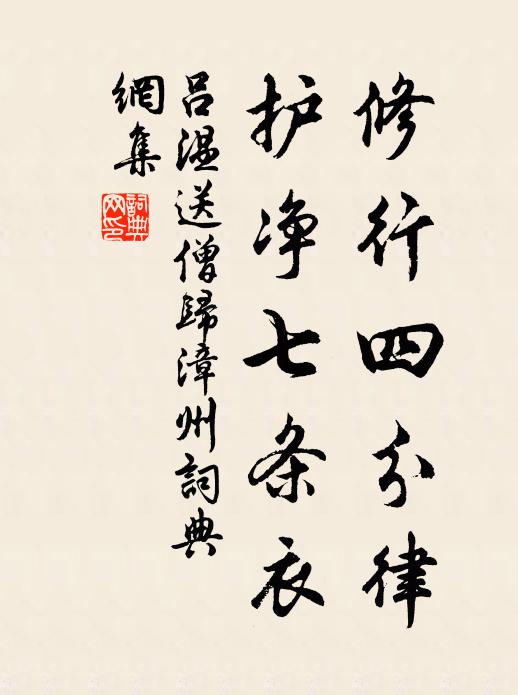 修行四分律
护净七条衣
吕温送僧歸漳州詞典
網集
詞典网印